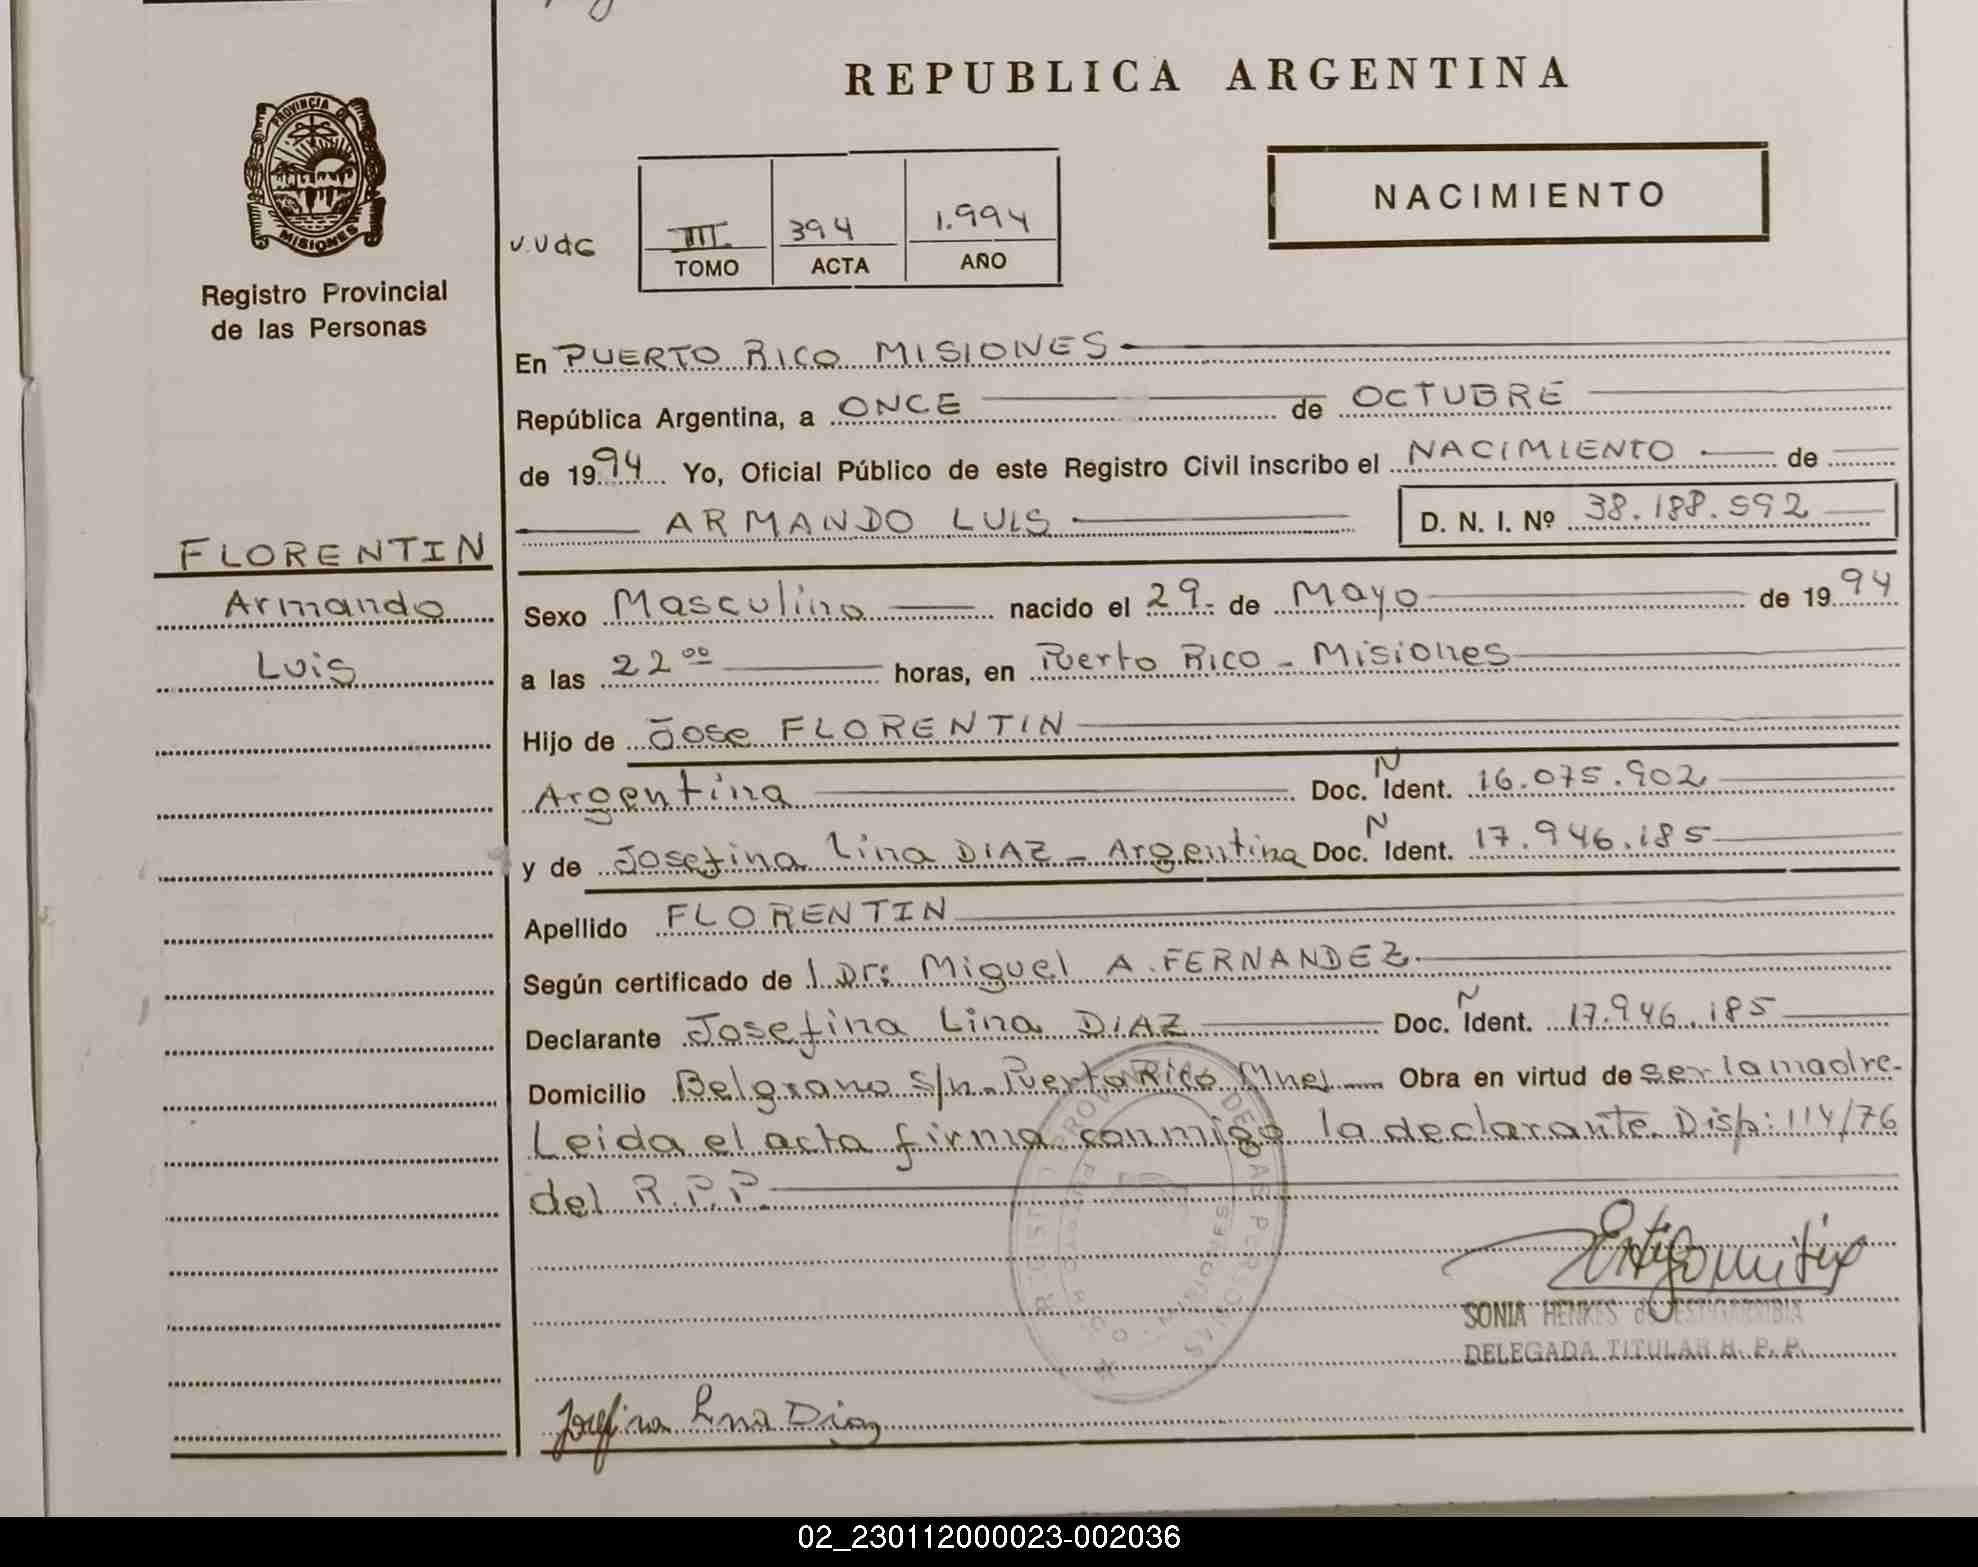 REPUBLICA ARGENTINA
PROVINCIA DE
MISIONES
Registro Provincial
de las Personas
NACIMIENTO
III 394 1.994
TOMO ACTA AÑO
En PUERTO RICO MISIONES
República Argentina, a ONCE de OCTUBRE
de 1994 Yo, Oficial Público de este Registro Civil inscribo el NACIMIENTO de
ARMANDO LUIS D. N. I. Nº 38.188.592
FLORENTIN
Armando
Luis
Sexo Masculino nacido el 29 de Mayo de 1994
a las 22 00 horas, en Puerto Rico - Misiones
Hijo de Jose FLORENTIN
Argentina Doc. N Ident. 16.075.902
y de Josefina Lina DIAZ - Argentina Doc. N Ident. 17.946.185
Apellido FLORENTIN
Según certificado de l Dr: Miguel A. FERNANDEZ
Declarante Josefina Lina DIAZ Doc. N Ident. 17.946.185
Domicilio Belgrano s/n - Puerto Rico Mnes Obra en virtud de ser la madre.
Leida el acta firma conmigo la declarante. Disp: 114/76
del R.P.P.
SONIA HENKES de ESTIGARRIBIA
DELEGADA TITULAR R. P. P.
Josefina Lina Diaz
02_230112000023-002036